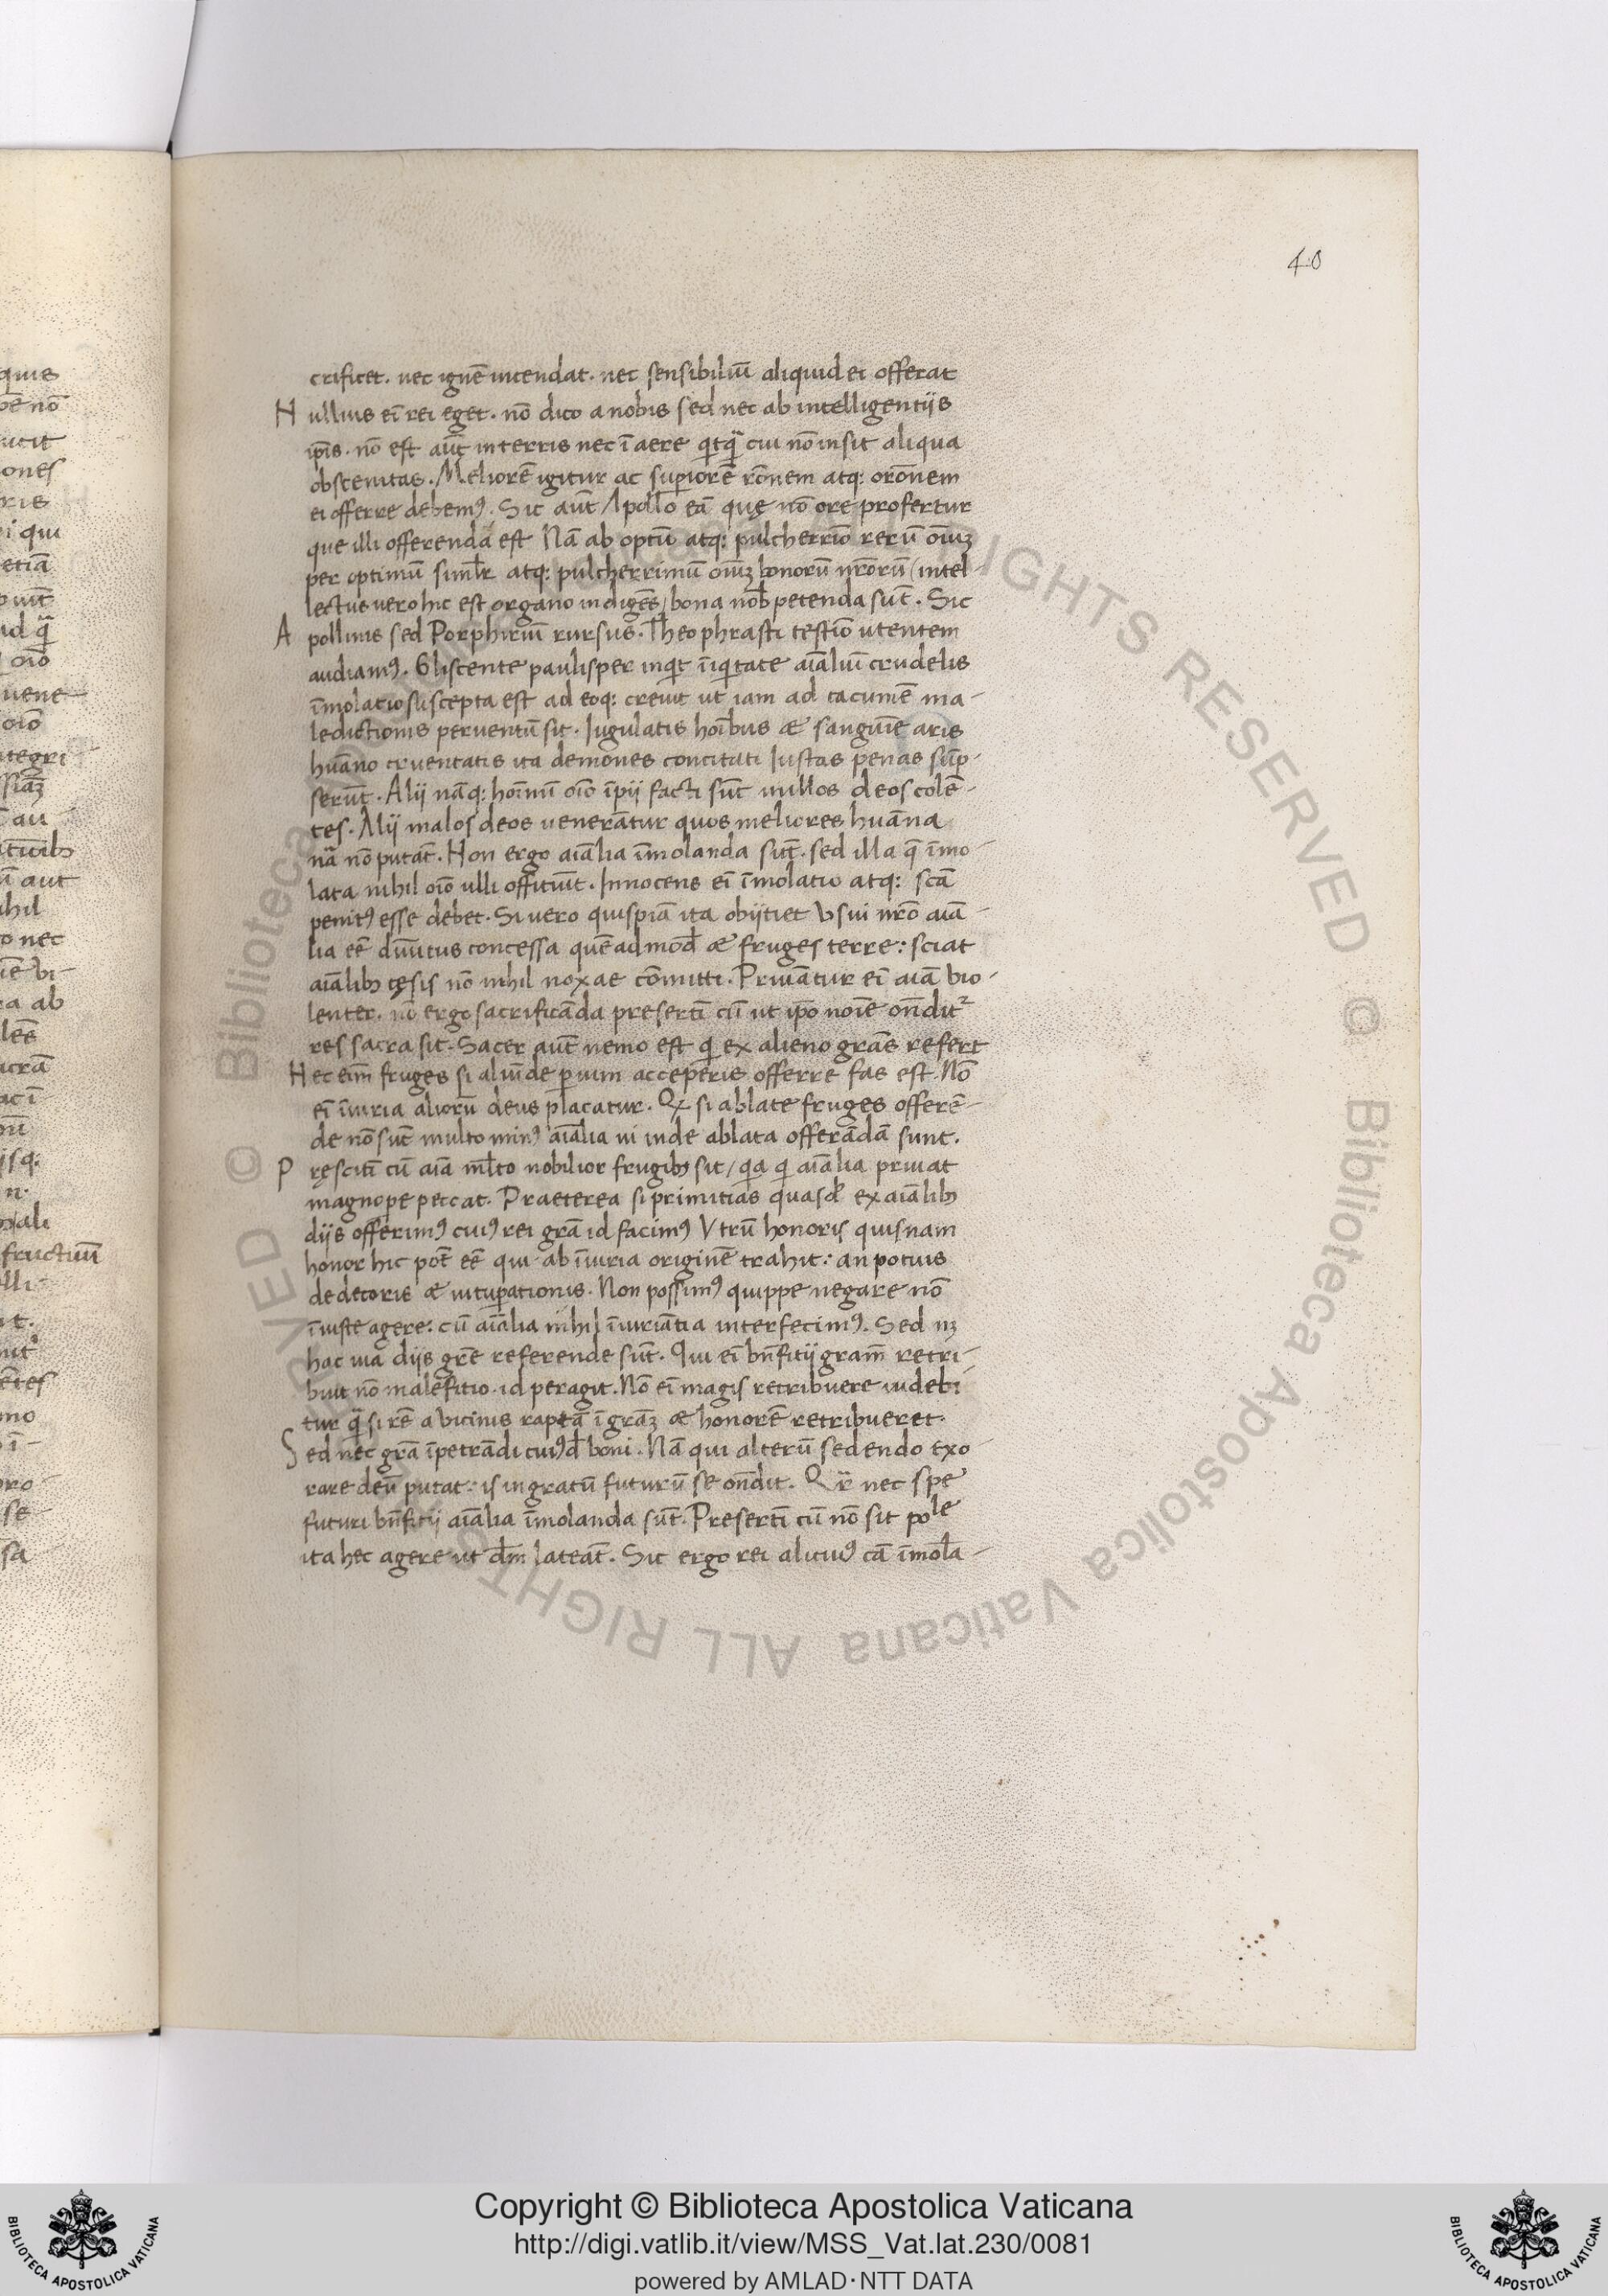 40
crificet. nec ignē incendat. nec sensibiliū aliquid ei offerat
N ullius eī rei eget. nō dico a nobis sed nec ab intelligentijs
ip̄is. nō est aūt in terris nec ī aere qͥtqͣ cui nō insit aliqua
obscenitas. Meliorē igitur ac supiorē rōnem atq: orōnem
ei offerre debemꝰ. Sic aūt Apollo eā quę nō ore profertur
que illi offerenda est Nā ab optīo atq: pulcherrīo rerū oīuꝫ
per optimū simlr̄ atq: pulcherrimū oīuꝫ bonorū nr̄orū (intel-
lectus uero hic est organo indigēs) bona nob̄ petenda sūt. Sic
A pollinis sed Porphiriū rursus. Theophrasti testīo utentem
audiamꝰ. Gliscente paulisper inqͥt īiqͥtate aīaliū crudelis
īmolatio suscepta est ad eoq: creuit ut iam ad cacumē ma-
ledictionis peruentū sit. Iugulatis hoībus & sanguīe aris
huāno cruentatis ita demones concitati Iustas penas sūp-
serūt. Alij nāq: hoīnū oīo īpij facti sūt nullos deos colē-
tes. Alij malos deos uenerātur quos meliores huāna
nā nō putāt. Non ergo aīalia īmolanda sūt. sed illa q̄ īmo-
lata nihil oīo ulli offitiūt. Innocens eī īmolatio atq: scā
penitꝰ esse debet. Si uero quispiā ita obijtiet Vsui nr̄o aīa-
lia eē diuītus concessa quēadmod̄ & fruges terre: sciat
aīalibꝫ cęsis nō nihil noxae cōmitti. Priuātur eī aīā vio-
lenter. nō ergo sacrificāda presertī cū ut ip̄o noīe ondit᷑
res sacra sit. Sacer aūt nemo est qͥ ex alieno grās refert
N ec eīm fruges si aliūde p uim acceperis offerre fas est. Nō
eī īiuria aliorū deus placatur. Qꝫ si ablate fruges offerē-
de nō sūt multo minꝰ aīalia ui inde ablata offerāda sunt.
P rescitī cū aīa ml̄to nobilior frugibꝫ sit / qͥa qͥ aīalia priuat
magnope peccat. Praeterea si primitias quasd̄ ex aīalibꝫ
dijs offerimꝰ cuiꝰ rei grā id facimꝰ Vtrū honoris quisnam
honor hic pōt eē qui ab īiuria originē trahit: an potius
dedecoris & uitupationis. Non possumꝰ quippe negare nō
īiuste agere: cū aīalia nihil īiuriātia interfecimꝰ. Sed nꝫ
hac uia dijs gr̄e referende sūt. Qui eī bn̄fitij gram̄ retri-
buit nō malefitio id peragit. Nō eī magis retribuere uidebi
tur qͣ si rē a vicinis raptā ī grāꝫ & honorē retribueret.
S ed nec grā īpetrādi cuiꝰd̄ boni. Nā qui alterū sedendo exo
rare deū putat: is ingratū futurū se ondit. Qr̄ nec spe
futuri bn̄fitij aīalia īmolanda sūt. Presertī cū nō sit pole
ita hec agere ut dm̄ lateāt. Sic ergo rei alicuiꝰ cā īmola-
Copyright © Biblioteca Apostolica Vaticana
http://digi.vatlib.it/view/MSS_Vat.lat.230/0081
powered by AMLAD·NTT DATA
BIBLIOTECA APOSTOLICA VATICANA
BIBLIOTECA APOSTOLICA VATICANA